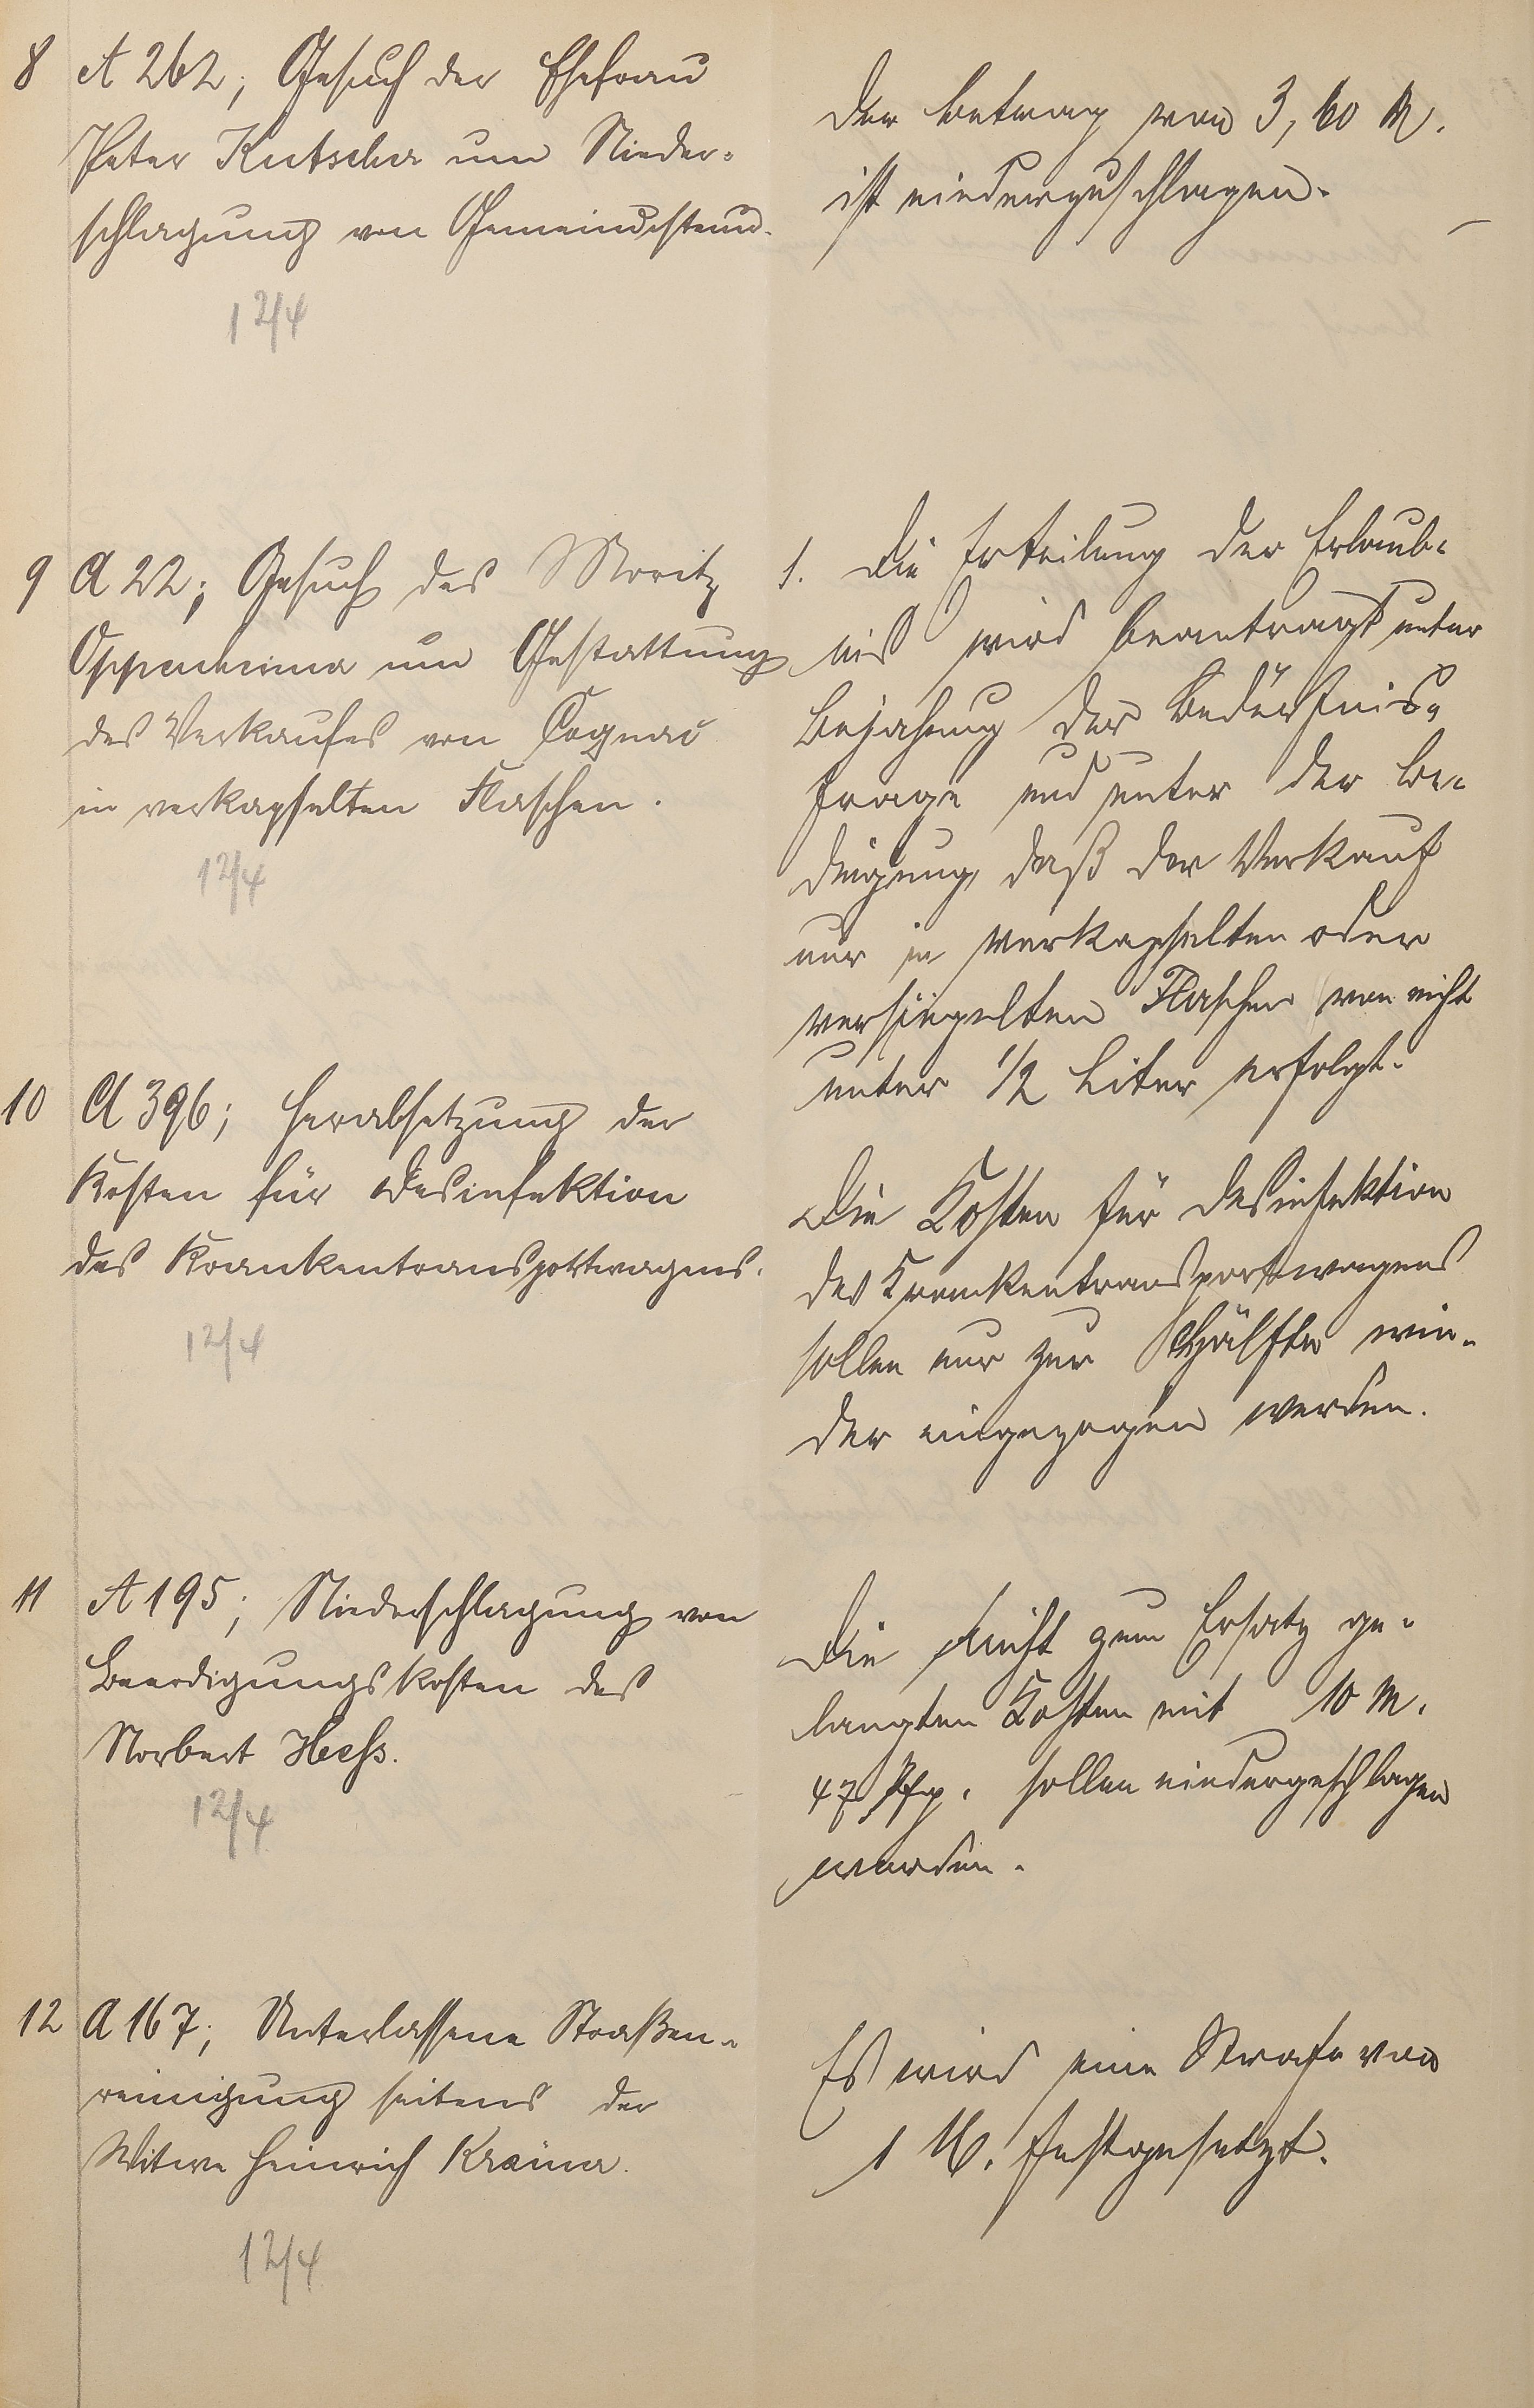 8 A 262; Gesuch der Ehefrau
Peter Kutscher um Nieder-
schlagung von Gemeindesteuer.
12/4
Der Betrag von 3,60 M.
ist niederzuschlagen.
9 A 22; Gesuch des Moritz
Oppenheimer um Gestattung
des Verkaufes von Cognac
in verkapselten Flaschen.
12/4
1. Die Erteilung der Erlaub-
nis wird beantragt unter
Bejahung der Bedürfnis-
frage und unter der Be-
dingung, daß der Verkauf
nur in verkapselten oder
versiegelten Flaschen von nicht
unter 1/2 Liter erfolgt.
10 A 396; Herabsetzung der
Kosten für Desinfektion
des Krankentransportwagens.
12/4
Die Kosten für Desinfektion
des Krankentransportwagens
sollen nur zur Hälfte wie-
der eingezogen werden.
11 A 195; Niederschlagung von
Beerdigungskosten des
Norbert Hess.
12/4
Die nicht zum Ersatz ge-
langten Kosten mit 10 M.
47 Pfg. sollen niedergeschlagen
werden.
12 A 167; Unterlassene Straßen-
reinigung seitens der
Witwe Heinrich
12/4
Es wird eine Strafe von
1 M. festgesetzt.